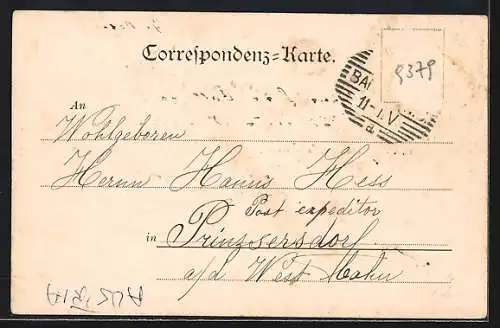 Correspondenz=Karte.
9379
BA
11-1.V
a
An
Wohlgeboren
Herrn Hanns Hess
Post expeditor
in Prinzersdorf
a/d West Bahn
AUSTRIA